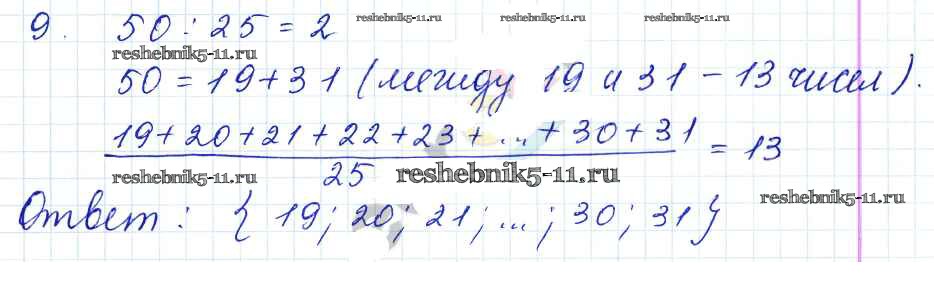 9. 50 : 25 = 2
reshebnik5-11.ru reshebnik5-11.ru reshebnik5-11.ru
reshebnik5-11.ru
50 = 19 + 31 (между 19 и 31 - 13 чисел).
19 + 20 + 21 + 22 + 23 + ... + 30 + 31
25 = 13
reshebnik5-11.ru reshebnik5-11.ru
reshebnik5-11.ru
Ответ: { 19; 20; 21; ...; 30; 31 }